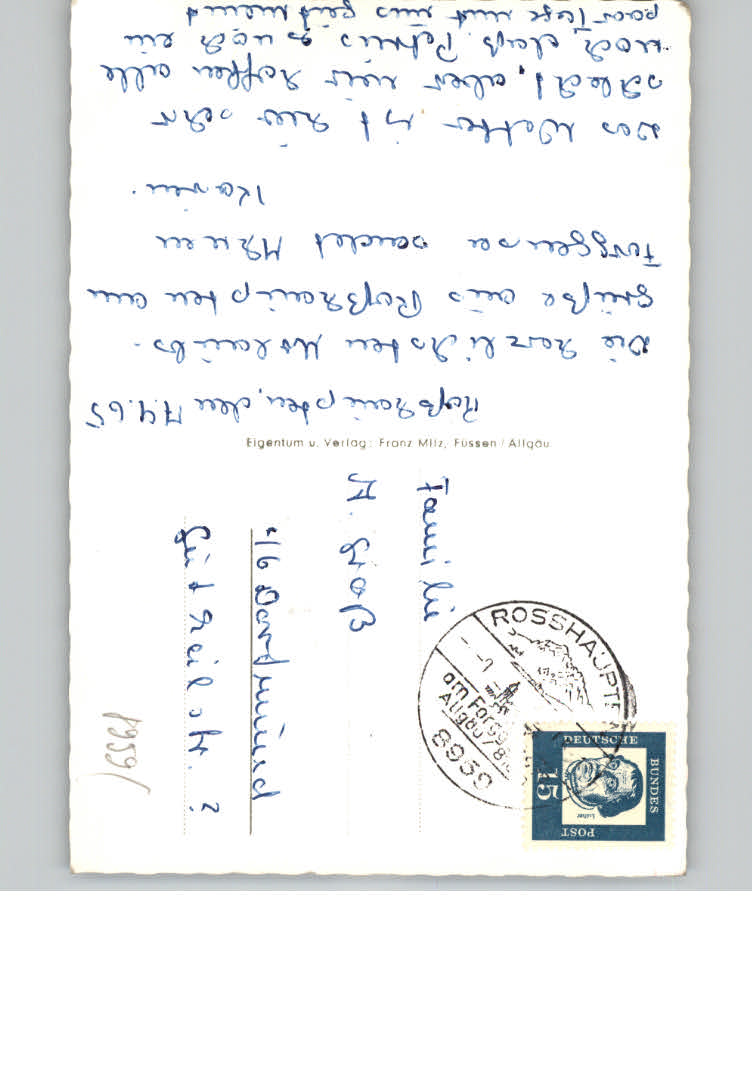 Roßhaupten, den 7.4.65
Die herzlichsten Urlaubs-
grüße aus Roßhaupten am
Forggensee sendet Ihnen
Karin.
Das Wetter ist hier sehr
schlecht, aber wir hoffen alle
noch, daß Petrus es noch ein
paar Tage mit uns gut meint
Eigentum u. Verlag: Franz Milz, Füssen/Allgäu
Familie
H. Groß
46 Dortmund
str. 2
8959/
ROSSHAUPTEN
am Forgg
Allgäu
8959
DEUTSCHE
BUNDES
POST
15
Luther